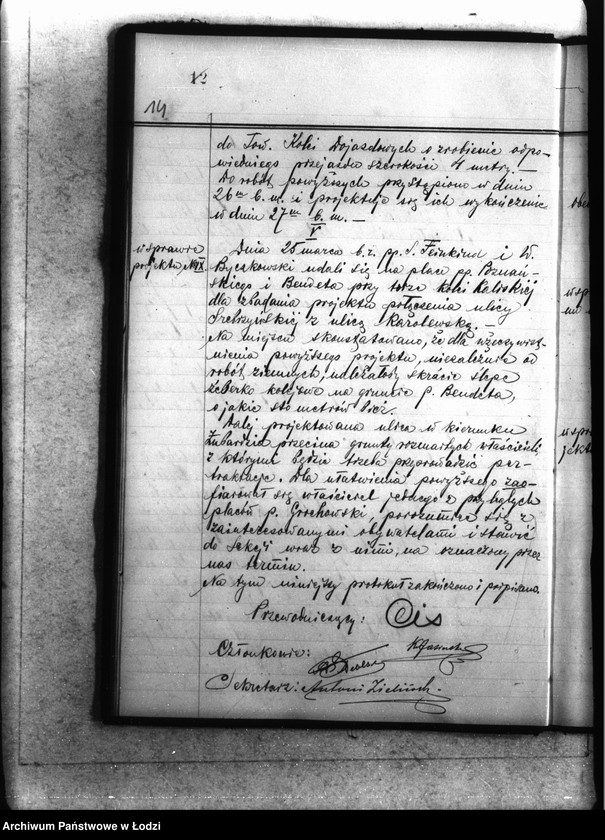 12
14
do Tow. Kolei Dojazdowych o zrobienie odpo-
wiedniego przejazdu szerokości 4 metry. —
Do robót powyższych przystąpiono w dniu
26 b. m. i projektuje się ich wykończenie
w dniu 27 b. m. —
V
w sprawie
projektu № IX.
Dnia 25 marca b. r. pp. S. Feinkind i W.
Byczkowski udali się na place pp. Poznań-
skiego i Bendeta przy torze kolei Kaliskiej
dla zbadania projektu połączenia ulicy
Srebrzyńskiej z ulicą Karolewską. —
Na miejscu skonstatowano, że dla urzeczywist-
nienia powyższego projektu, niezależnie od
robót ziemnych, należałoby skrócić ślepe
żeberko kolejowe na gruncie p. Bendeta,
o jakie sto metrów bież.
Dalej projektowana ulica w kierunku
Żubardzia przecina grunty rozmaitych właścicieli,
z którymi będzie trzeba przeprowadzić per-
traktacje. Dla ułatwienia powyższego zao-
fiarował się właściciel jednego z przyległych
placów p. Grochowski, porozumieć się z
zainteresowanymi obywatelami i stawić
do Sekcji wraz z nimi, na oznaczony przez
nas termin.
Na tym niniejszy protokuł zakończono i podpisano.
Przewodniczący:
Członkowie:
Sekretarz: Antoni
Archiwum Państwowe w Łodzi